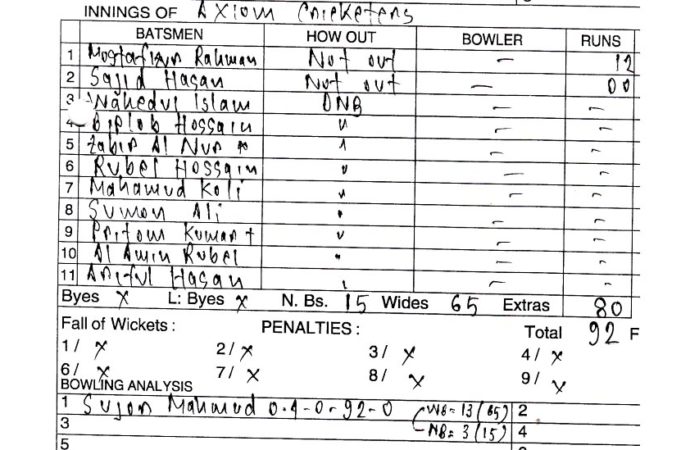 INNINGS OF Axiom Cricketers
BATSMEN HOW OUT BOWLER RUNS
1 Mostafizur Rahman Not out — 12
2 Sajid Hasan Not out — 00
3 Wahedul Islam DNB — —
4 Biplob Hossain " — —
5 Zabir Al Nur " — —
6 Rubel Hossain " — —
7 Mahamud Koli " — —
8 Sumon Ali " — —
9 Pritom Kumar + " — —
10 Al Amin Rubel " — —
11 Ariful Hasan " — —
Byes x L: Byes x N. Bs. 15 Wides 65 Extras 80
Fall of Wickets : PENALTIES : Total 92 F
1/ x 2/ x 3/ x 4/ x
6/ x 7/ x 8/ x 9/ x
BOWLING ANALYSIS
1 Sujon Mahmud 0.4-0-92-0 (WB = 13 (65) 2
3 NB = 3 (15) 4
5